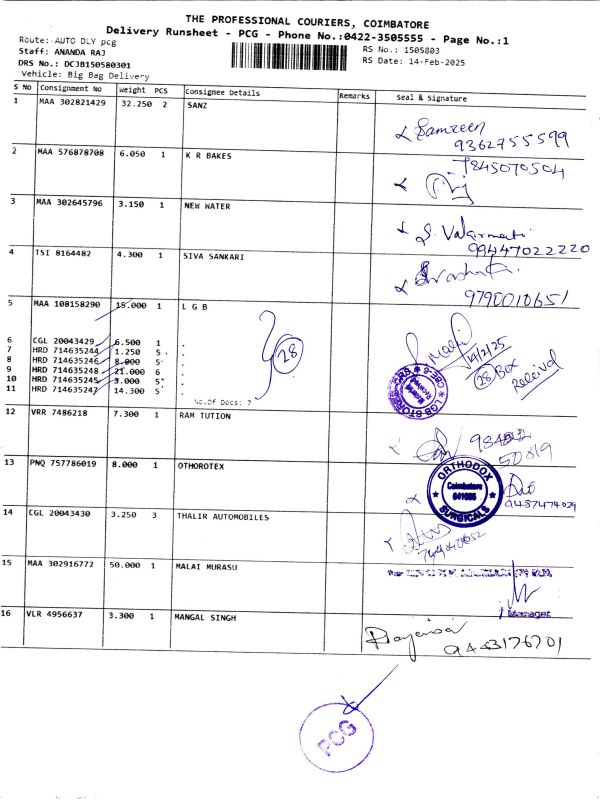 THE PROFESSIONAL COURIERS, COIMBATORE
Delivery Runsheet - PCG - Phone No.:0422-3505555 - Page No.:1
Route: AUTO DLY pcg
Staff: ANANDA RAJ
RS No.: 1505803
DRS No.: DCJB150580301
RS Date: 14-Feb-2025
Vehicle: Big Bag Delivery
S No Consignment No Weight PCS Consignee Details Remarks Seal & Signature
1 MAA 302821429 32.250 2 SANZ
Samreen
9362755599
2 MAA 576878708 6.050 1 K R BAKES
7845070504
3 MAA 302645796 3.150 1 NEW WATER
S. Valarmathi
99447022220
4 TSI 8164482 4.300 1 SIVA SANKARI
9790010651
5 MAA 108158290 15.000 1 L G B
6 CGL 20043429 6.500 1 .
7 HRD 714635244 1.250 5 .
8 HRD 714635246 8.000 5 .
9 HRD 714635248 21.000 6 .
10 HRD 714635245 3.000 5 .
11 HRD 714635247 14.300 5 .
No.Of Docs: 7
28
14/2/25
28 Box
Received
LGB STORES
12 VRR 7486218 7.300 1 RAM TUTION
50819
13 PNQ 757786019 8.000 1 OTHOROTEX
ORTHODOX
Coimbatore
SURGICALS
9487474029
14 CGL 20043430 3.250 3 THALIR AUTOMOBILES
15 MAA 302916772 50.000 1 MALAI MURASU
Manager
16 VLR 4956637 3.300 1 MANGAL SINGH
9443176701
PCG